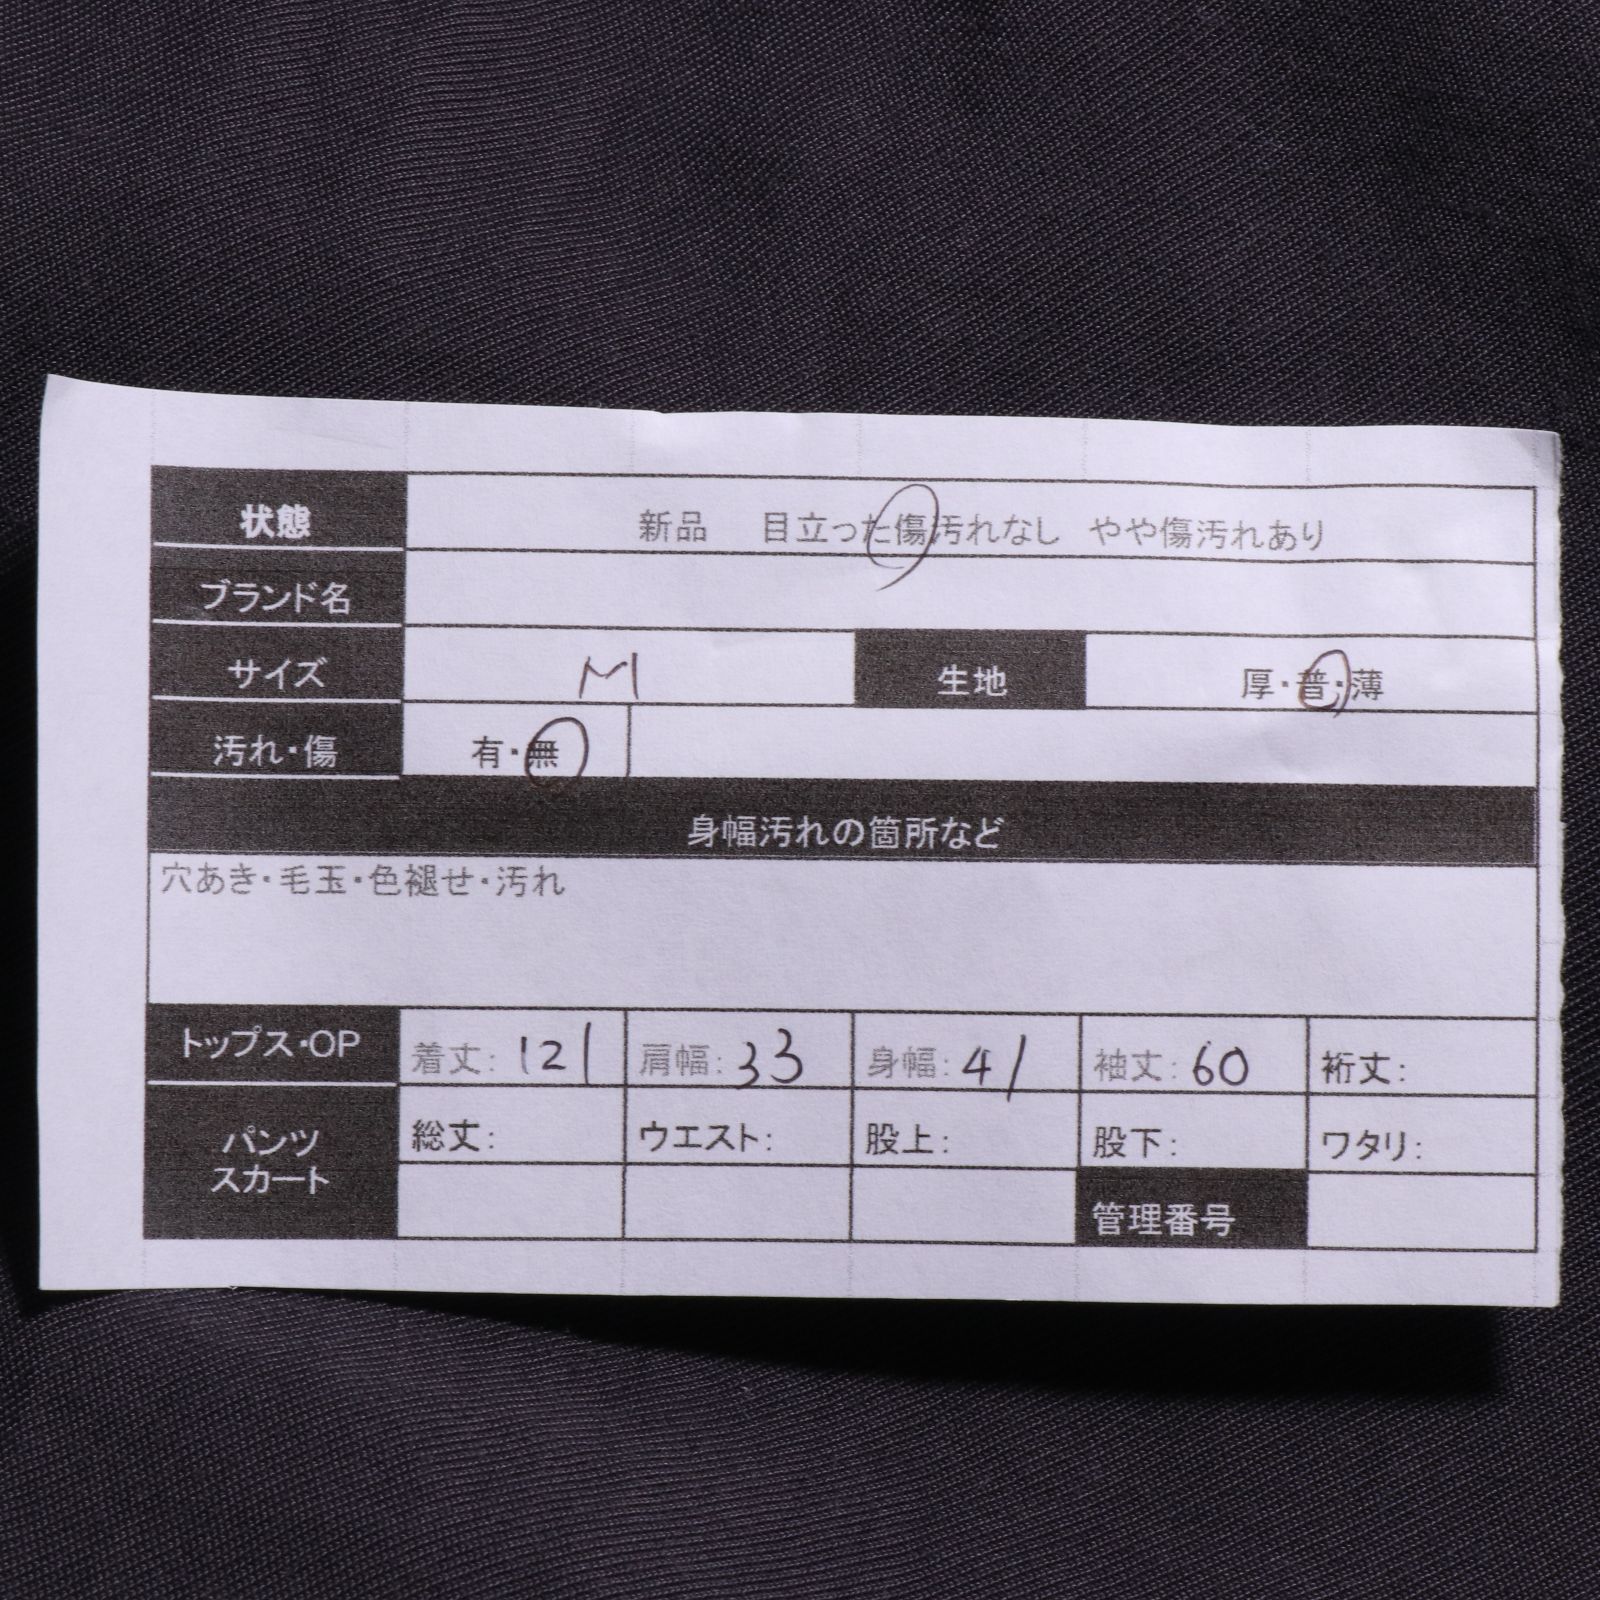 状態 新品 目立った傷汚れなし やや傷汚れあり
ブランド名
サイズ M 生地 厚・普・薄
汚れ・傷 有・無
身幅汚れの箇所など
穴あき・毛玉・色褪せ・汚れ
トップス・OP 着丈: 121 肩幅: 33 身幅: 41 袖丈: 60 裄丈:
パンツ
スカート
総丈: ウエスト: 股上: 股下: ワタリ:
管理番号